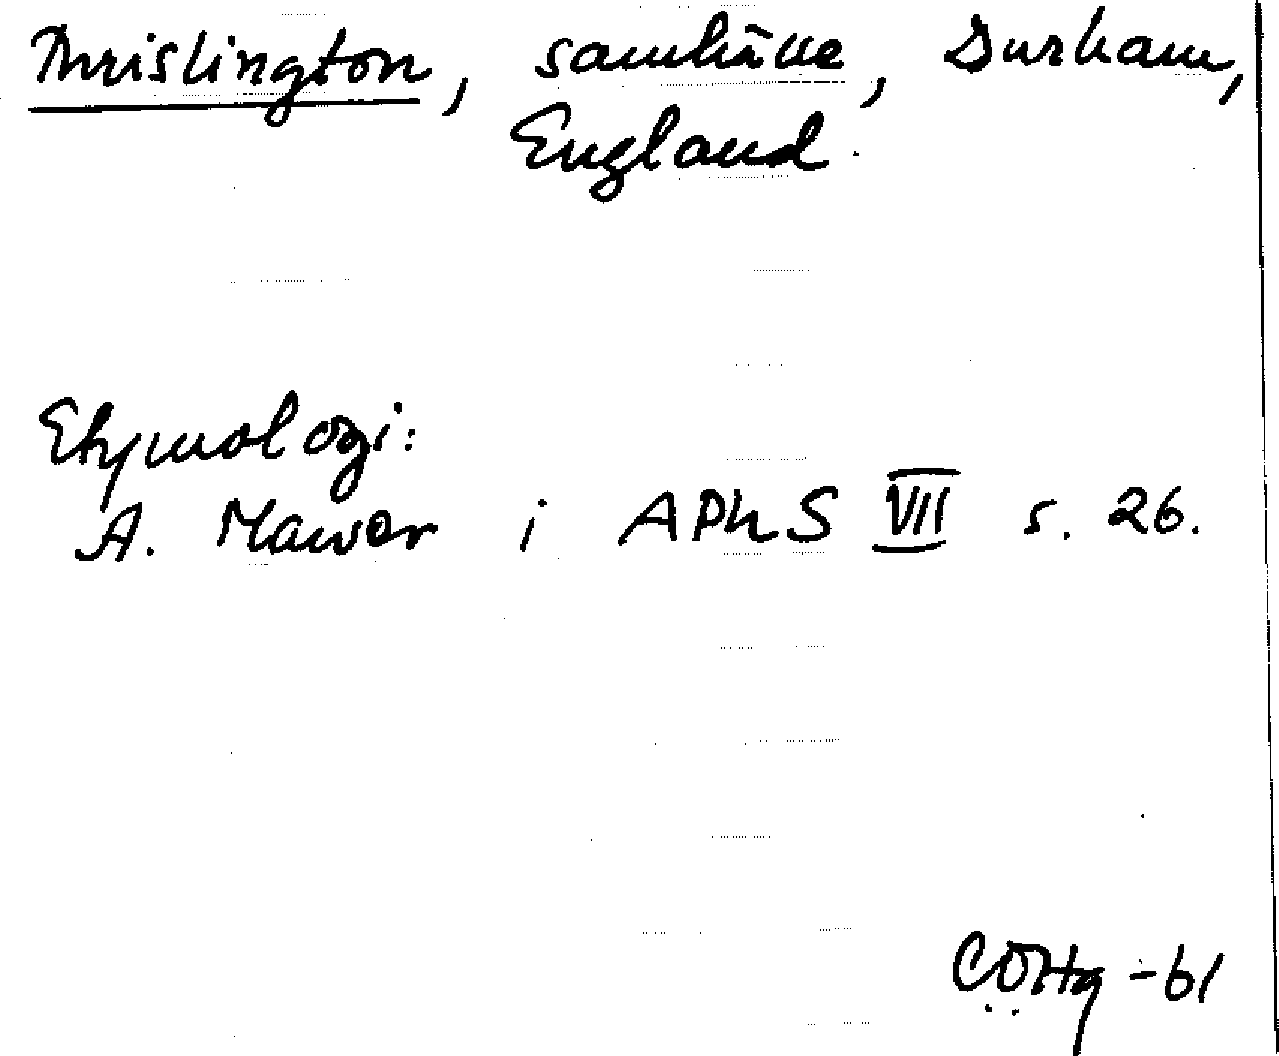 Thrislington, samhäve, Durham,
England.
Etymologi:
A. Mawer i APhS VII s. 26.
-61